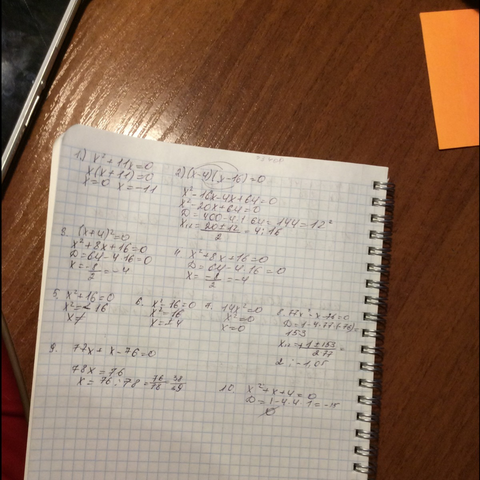 1) x²+11x=0
x(x+11)=0
x=0 x=-11
2) (x-4)(x-16)=0
x²-16x-4x+64=0
x²-20x+64=0
D=400-4·1·64=144=12²
x₁,₂=(20±12)/2=4; 16
3. (x+4)²=0
x²+8x+16=0
D=64-4·16=0
x=-8/2=-4
4. x²+8x+16=0
D=64-4·16=0
x=-8/2=-4
5. x²+16=0
x²=-16
6. x²-16=0
x²=16
x=±4
7. 14x²=0
x²=0
x=0
8. 77x²-x-76=0
153
2;-1,05
9. 77x+x-76=0
78x=76
x=76:78=76/78=38/39
10. x²+x+4=0
D=1-4·4·1=-15